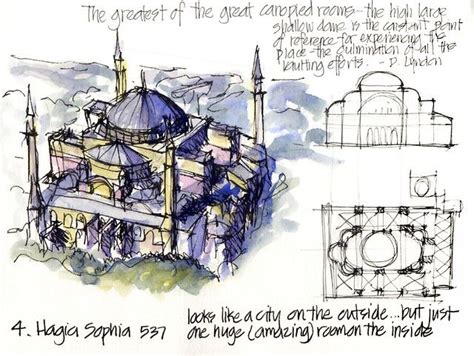 The greatest of the great canopied rooms - the high large
shallow dome is the constant point
of reference for experiencing the
place - the culmination of all the
vaulting efforts. - D. Lyndon
4. Hagia Sophia 537
looks like a city on the outside...but just
one huge (amazing) room on the inside